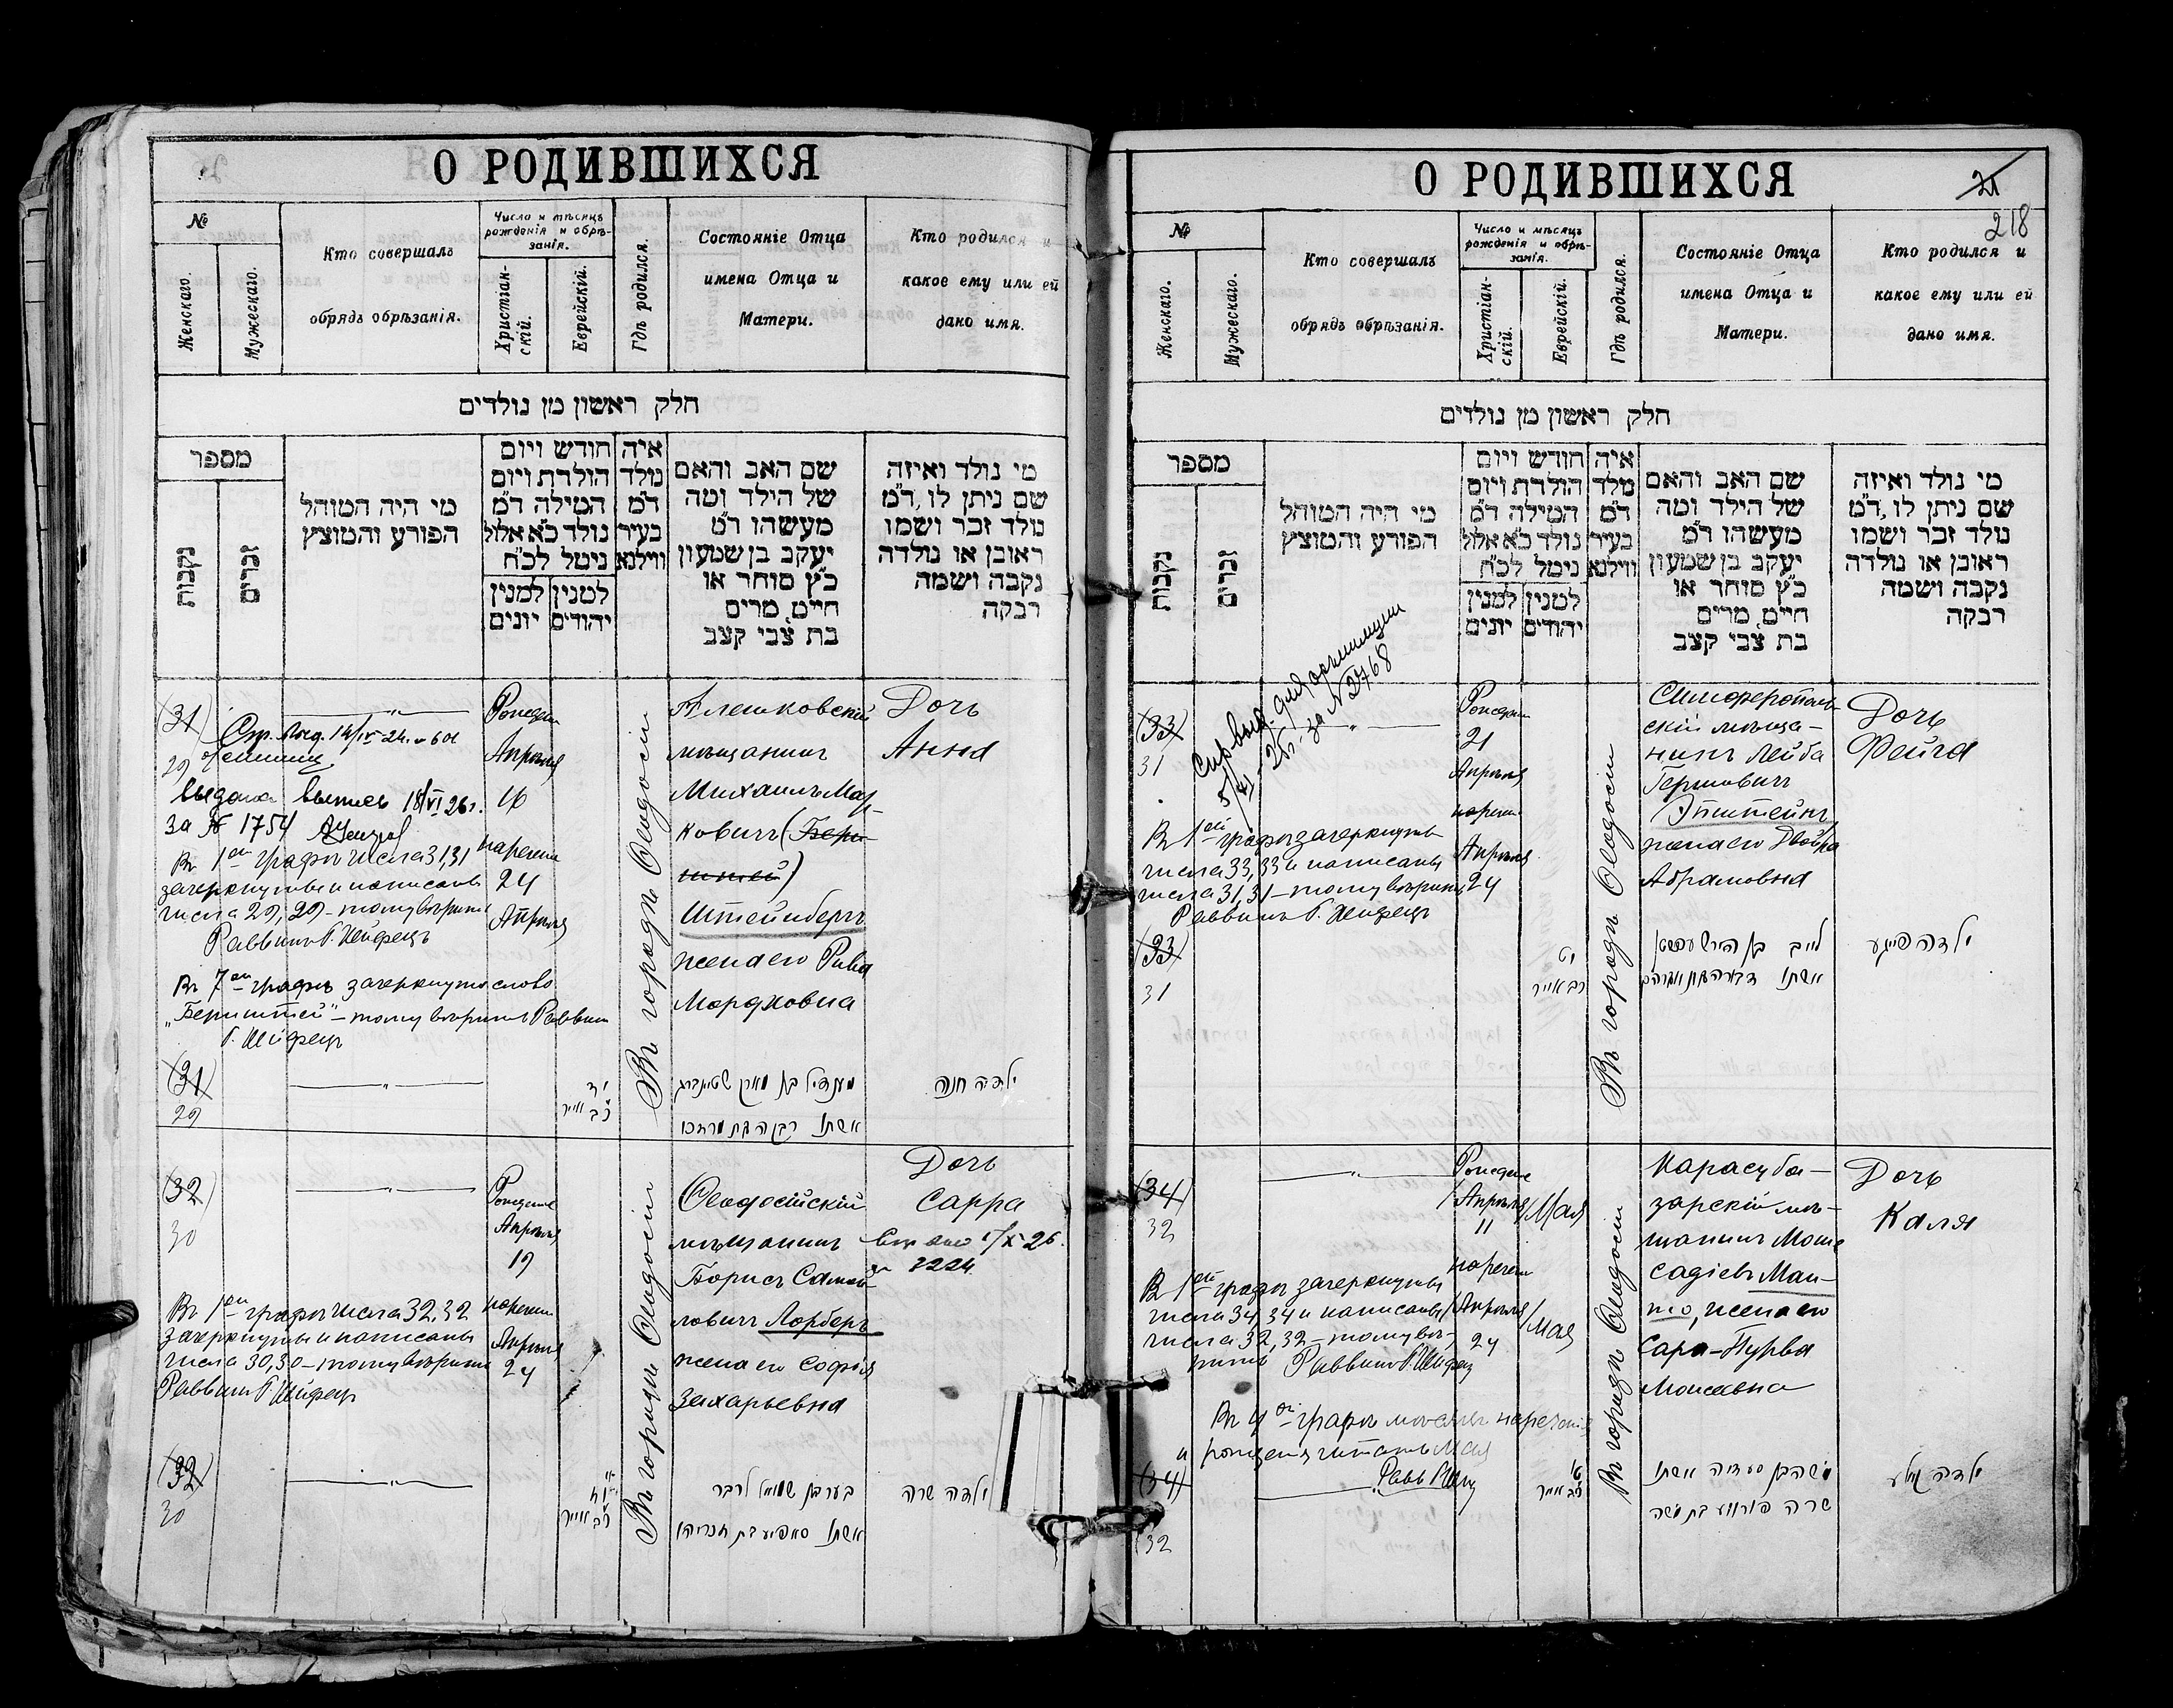 О РОДИВШИХСЯ
№
Женскаго.
Мужескаго.
Кто совершалъ
обрядъ обрѣзанія.
Число и мѣсяцъ
рожденія и обрѣ-
занія.
Христіан-
скій.
Еврейскій.
Гдѣ родился.
Состояніе Отца
имена Отца и
Матери.
Кто родился и
какое ему или ей
дано имя.
חלק ראשון מן נולדים
מספר
נקבות
זכרים
מי היה המוהל
הפורע והמוצץ
חודש ויום
הולדת ויום
המילה ד"מ
נולד כ"א אלול
ניטל לכ"ח
למנין
יונים
למנין
יהודים
איה
נולד
ד"מ
בעיר
ווילנא
שם האב והאם
של הילד ומה
מעשהו ד"מ
יעקב בן שמעון
כ"ץ סוחר או
חייט, מרים
בת צבי קצב
מי נולד ואיזה
שם ניתן לו, ד"מ
נולד זכר ושמו
ראובן או נולדה
נקבה ושמה
רבקה
(31)
29
Выдана выпись 18/VI 26 г.
за № 1754
Въ 1ой графѣ числа 31,31
зачеркнуты и написаны
числа 29, 29 – тому вѣрить
Раввинъ Г. Шифрецъ
Въ 7ой графѣ зачеркнуто слово
„Бериштей" – тому вѣритъ Раввин
Г. Шифрецъ
Рожден
Апрѣля
16
наречен
24
Апрѣля
Въ городѣ Ѳеодосіи
Алешковскій
мѣщанинъ
Михаилъ Мар-
ковичъ
Штейнбергъ
жена его Рива
Мордковна
Дочь
Анна
(31)
29
יד
אייר
אשתו
ילדה חנה
(32)
30
Рожден
Апрѣля
19
наречен
Апрѣля
24
Въ 1ой графѣ числа 32,32
зачеркнуты и написаны
числа 30,30 – тому вѣрить
Раввинъ Г. Шифрецъ
Въ городѣ Ѳеодосіи
Ѳеодосійскій
мѣщанинъ
Борисъ Самой-
ловичъ Лорберъ
жена его Софія
Захарьевна
Дочь
Сарра
за 2224
(32)
30
אייר
אשתו
ילדה שרה
О РОДИВШИХСЯ
21
218
№
Женскаго.
Мужескаго.
Кто совершалъ
обрядъ обрѣзанія.
Число и мѣсяцъ
рожденія и обрѣ-
занія.
Христіан-
скій.
Еврейскій.
Гдѣ родился.
Состояніе Отца
имена Отца и
Матери.
Кто родился и
какое ему или ей
дано имя.
חלק ראשון מן נולדים
מספר
נקבות
זכרים
מי היה המוהל
הפורע והמוצץ
חודש ויום
הולדת ויום
המילה ד"מ
נולד כ"א אלול
ניטל לכ"ח
למנין
יונים
למנין
יהודים
איה
נולד
ד"מ
בעיר
ווילנא
שם האב והאם
של הילד ומה
מעשהו ד"מ
יעקב בן שמעון
כ"ץ סוחר או
חייט, מרים
בת צבי קצב
מי נולד ואיזה
שם ניתן לו, ד"מ
נולד זכר ושמו
ראובן או נולדה
נקבה ושמה
רבקה
(33)
31
за № 2768
Рожден
21
Апрѣля
наречен
Апрѣля
24
Въ 1ой графѣ зачеркнуты
числа 33,33 и написаны
числа 31,31 – тому вѣрить
Раввинъ Г. Шифрецъ
Въ городѣ Ѳеодосіи
Симферополь-
скій мѣща-
нинъ Лейба
Гершовичъ
Эпштейнъ,
жена его Двойра
Абрамовна
Дочь
Фейга
(33)
31
אייר
אשתו
ילדה פייגע
(34)
32
Рожден
Апрѣля / Мая
11
наречен
Апрѣля / Мая
24
Въ 1ой графѣ зачеркнуты
числа 34,34 и написаны
числа 32,32 – тому вѣ-
рить Раввинъ Г. Шифрец
Въ 4ой графѣ мѣсяцъ нареченія
и рожденія читать Мая
Равв
Въ городѣ Ѳеодосіи
Карасуба-
зарскій мѣ-
щанинъ Моше
Садіевъ Ман-
то, жена его
Сара-Пурва
Моисеевна
Дочь
Каля
(34)
32
אייר
משה בן סעדיה אשתו
שרה פורווע בת משה
ילדה